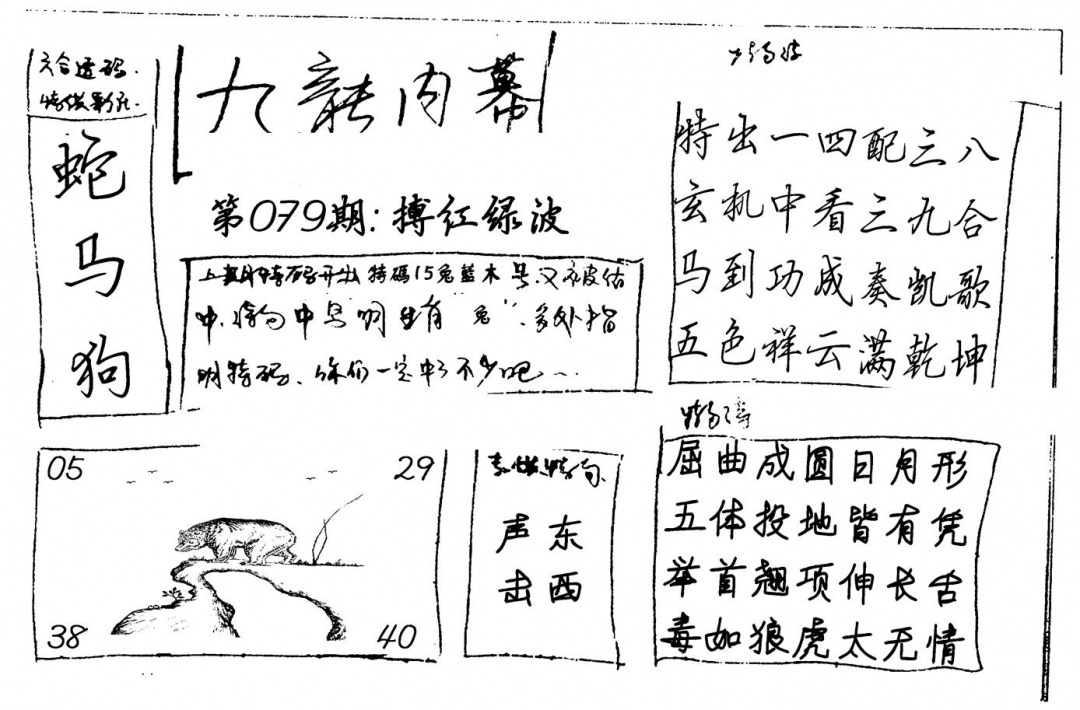 六合透码.
九龍内幕
蛇
马
狗
第079期:搏红绿波
上期特码开出特碼15兔蓝木号.又被估
中.
明特码.你们一定中了不少吧
特出一四配三八
玄机中看三九合
马到功成奏凯歌
五色祥云满乾坤
05
29
38
40
声东
击西
屈曲成圆日月形
五体投地皆有凭
举首翘项伸长舌
毒如狼虎太无情